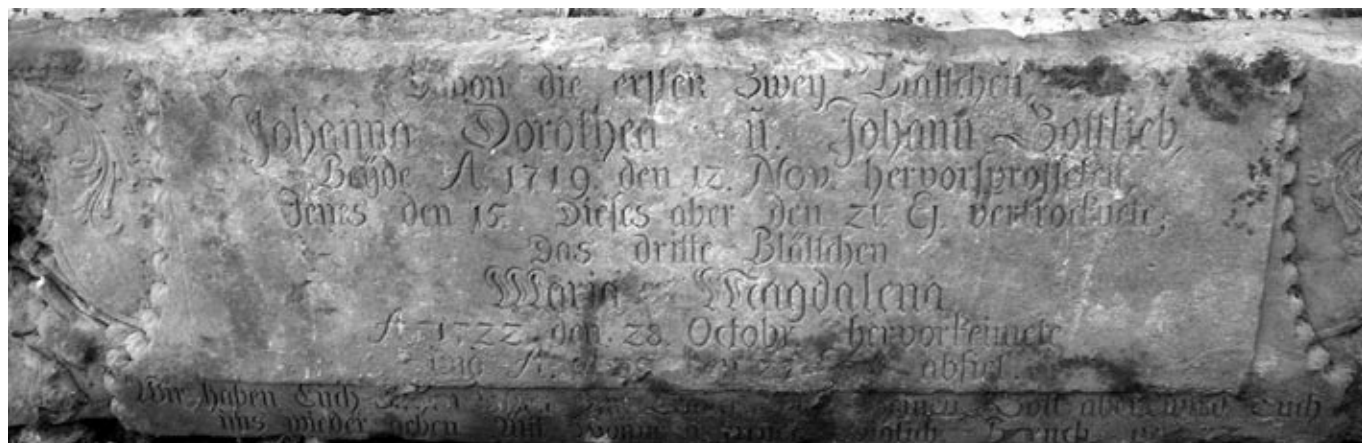 Davon die ersten Zwey Blättchen,
Johanna Dorothea ū. Johan̄ Gottlieb,
Beÿde A. 1719. den 12. Nov. hervorsprosseten
Jenes den 15. Dieses aber den 21. Ej. vertrocknete,
Das dritte Blättchen
Maria Magdalena
A. 1722. den. 28. Octobr. hervorkeimete
und A. abfiel.
Wir haben Euch Gott aber wird Euch
uns wieder geben Mit